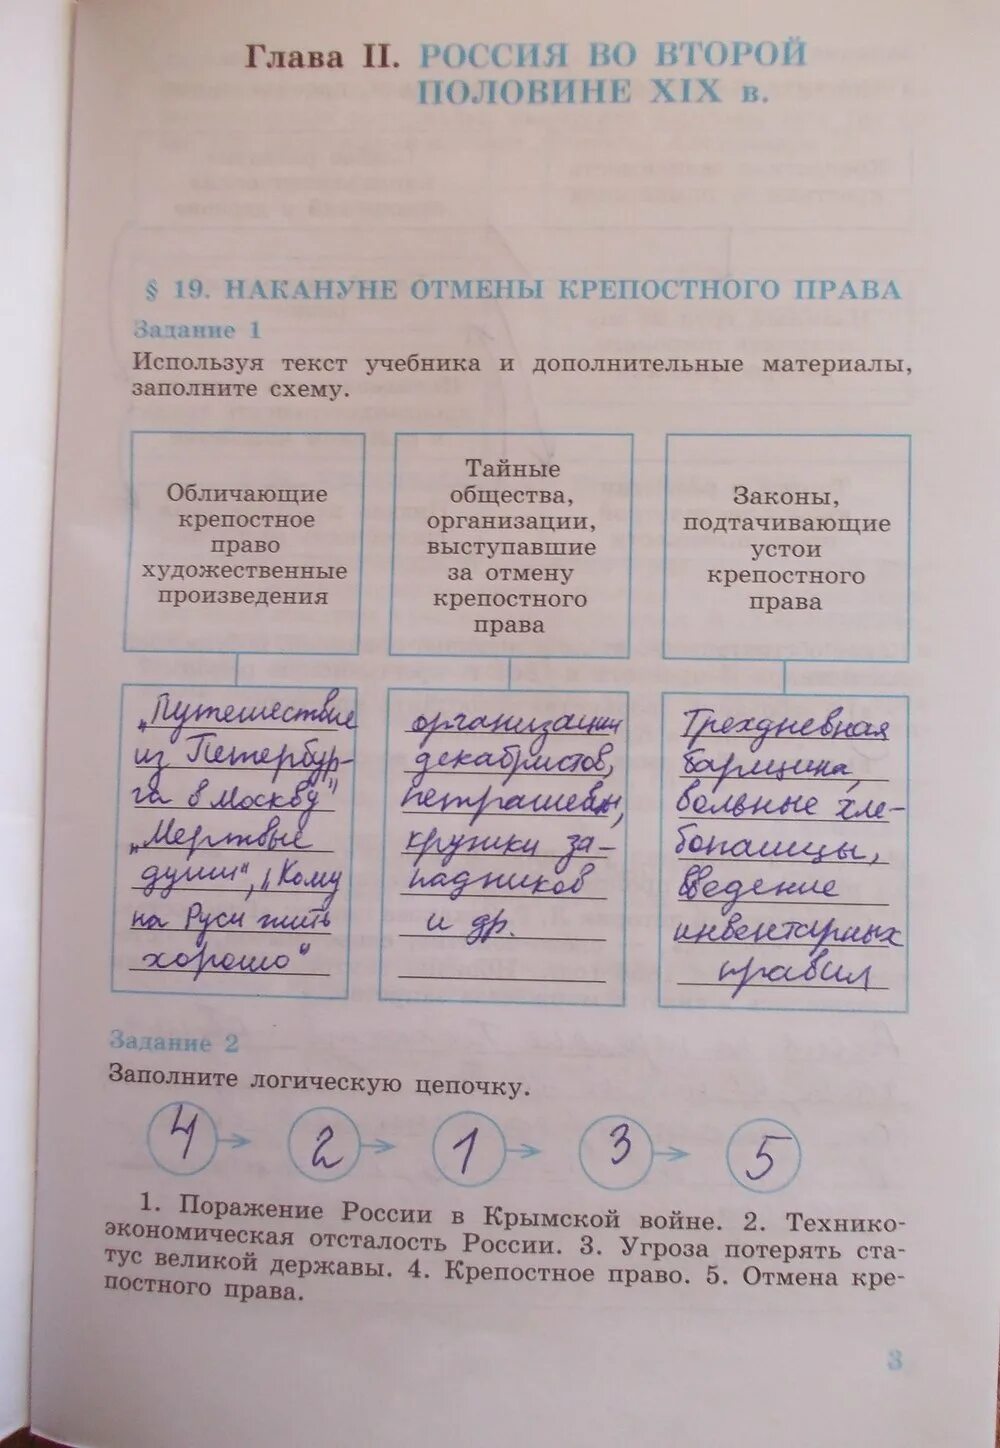 Глава II. РОССИЯ ВО ВТОРОЙ
ПОЛОВИНЕ XIX в.
§ 19. НАКАНУНЕ ОТМЕНЫ КРЕПОСТНОГО ПРАВА
Задание 1
Используя текст учебника и дополнительные материалы,
заполните схему.
Обличающие
крепостное
право
художественные
произведения
Тайные
общества,
организации,
выступавшие
за отмену
крепостного
права
Законы,
подтачивающие
устои
крепостного
права
„Путешествие
из Петербур-
га в Москву"
„Мертвые
души", „Кому
на Руси жить
хорошо"
организации
декабристов,
петрашевцы,
кружки за-
падников
и др.
Трехдневная
барщина,
вольные хле-
бопашцы,
введение
инвентарных
правил
Задание 2
Заполните логическую цепочку.
4 → 2 → 1 → 3 → 5
1. Поражение России в Крымской войне. 2. Технико-
экономическая отсталость России. 3. Угроза потерять ста-
тус великой державы. 4. Крепостное право. 5. Отмена кре-
постного права.
3